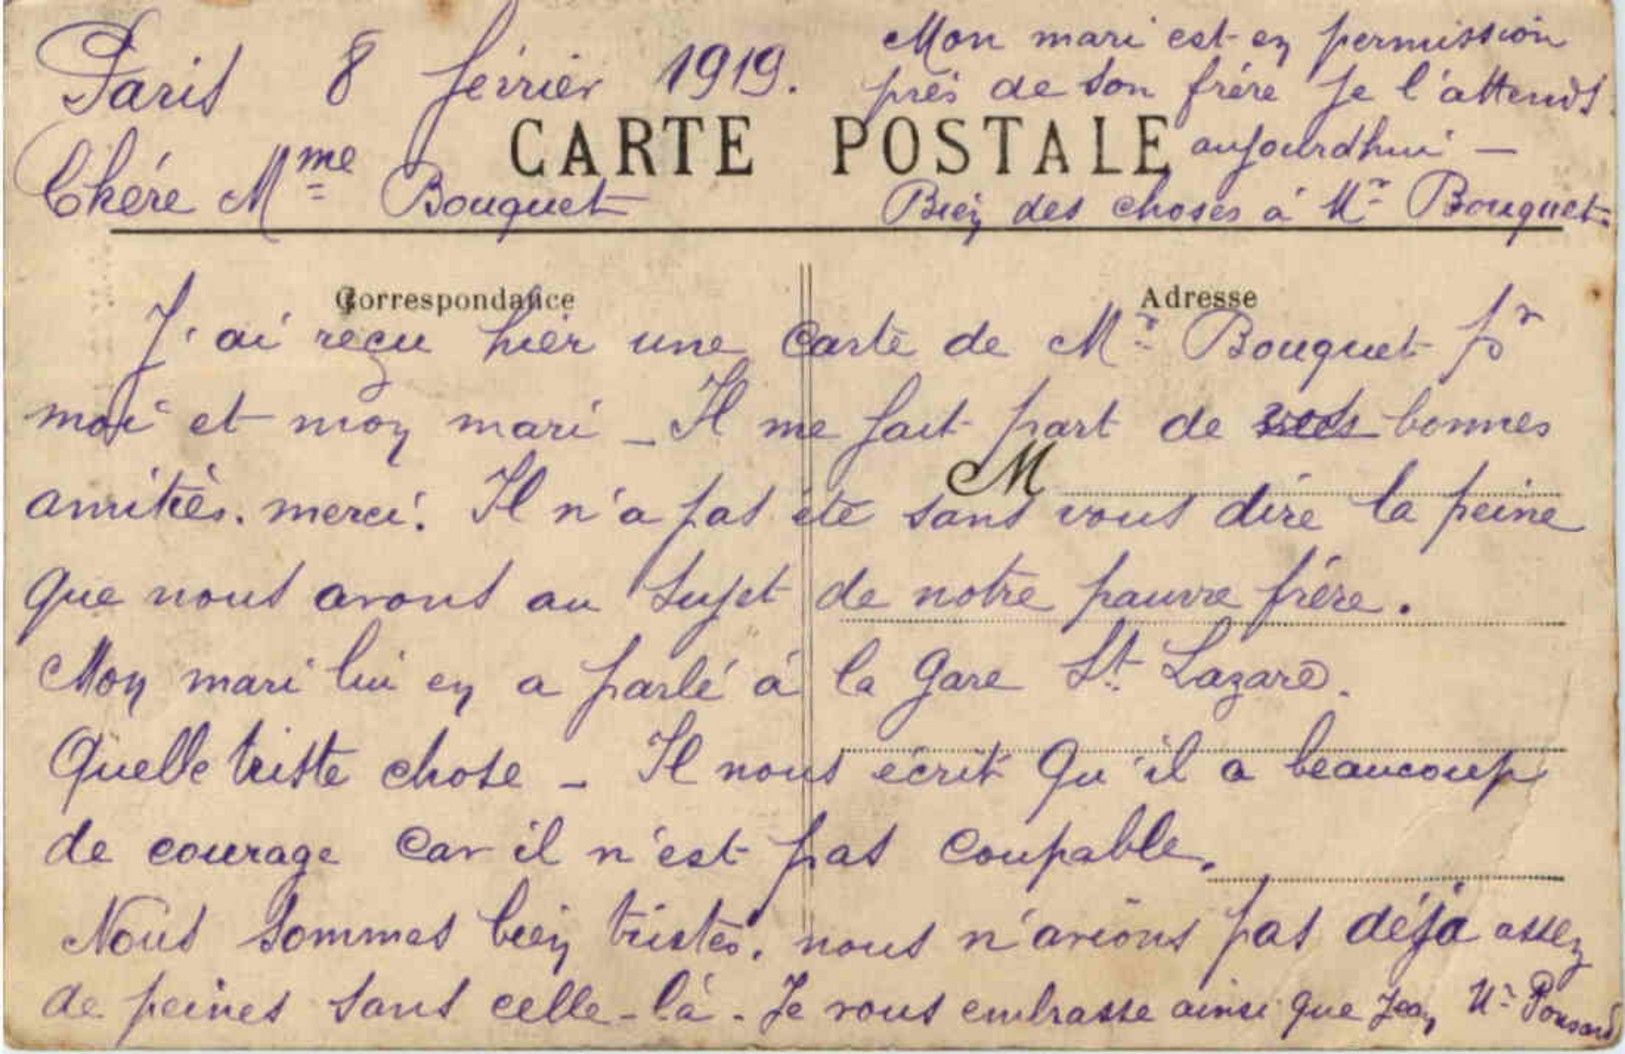 Paris 8 février 1919.
Chére Mme Bouquet
CARTE POSTALE
Mon mari est en permission
prés de son frére Je l'attends
aujourdhui —
Bien des choses à Mr Bouquet.
Correspondance
Adresse
J'ai reçu hier une carte de Mr Bouquet pr
moi et mon mari – Il me fait part de vos bonnes
amitiés. merci. Il n'a pas été sans vous dire la peine
M
que nous avons au sujet de notre pauvre frére.
Mon mari lui en a parlé á la gare St Lazare.
Quelle triste chose – Il nous écrit Qu'il a beaucoup
de courage car il n'est pas coupable.
Nous sommes bien tristes. nous n'avions pas déja assez
de peines sans celle-là. Je vous embrasse ainsi que Jean